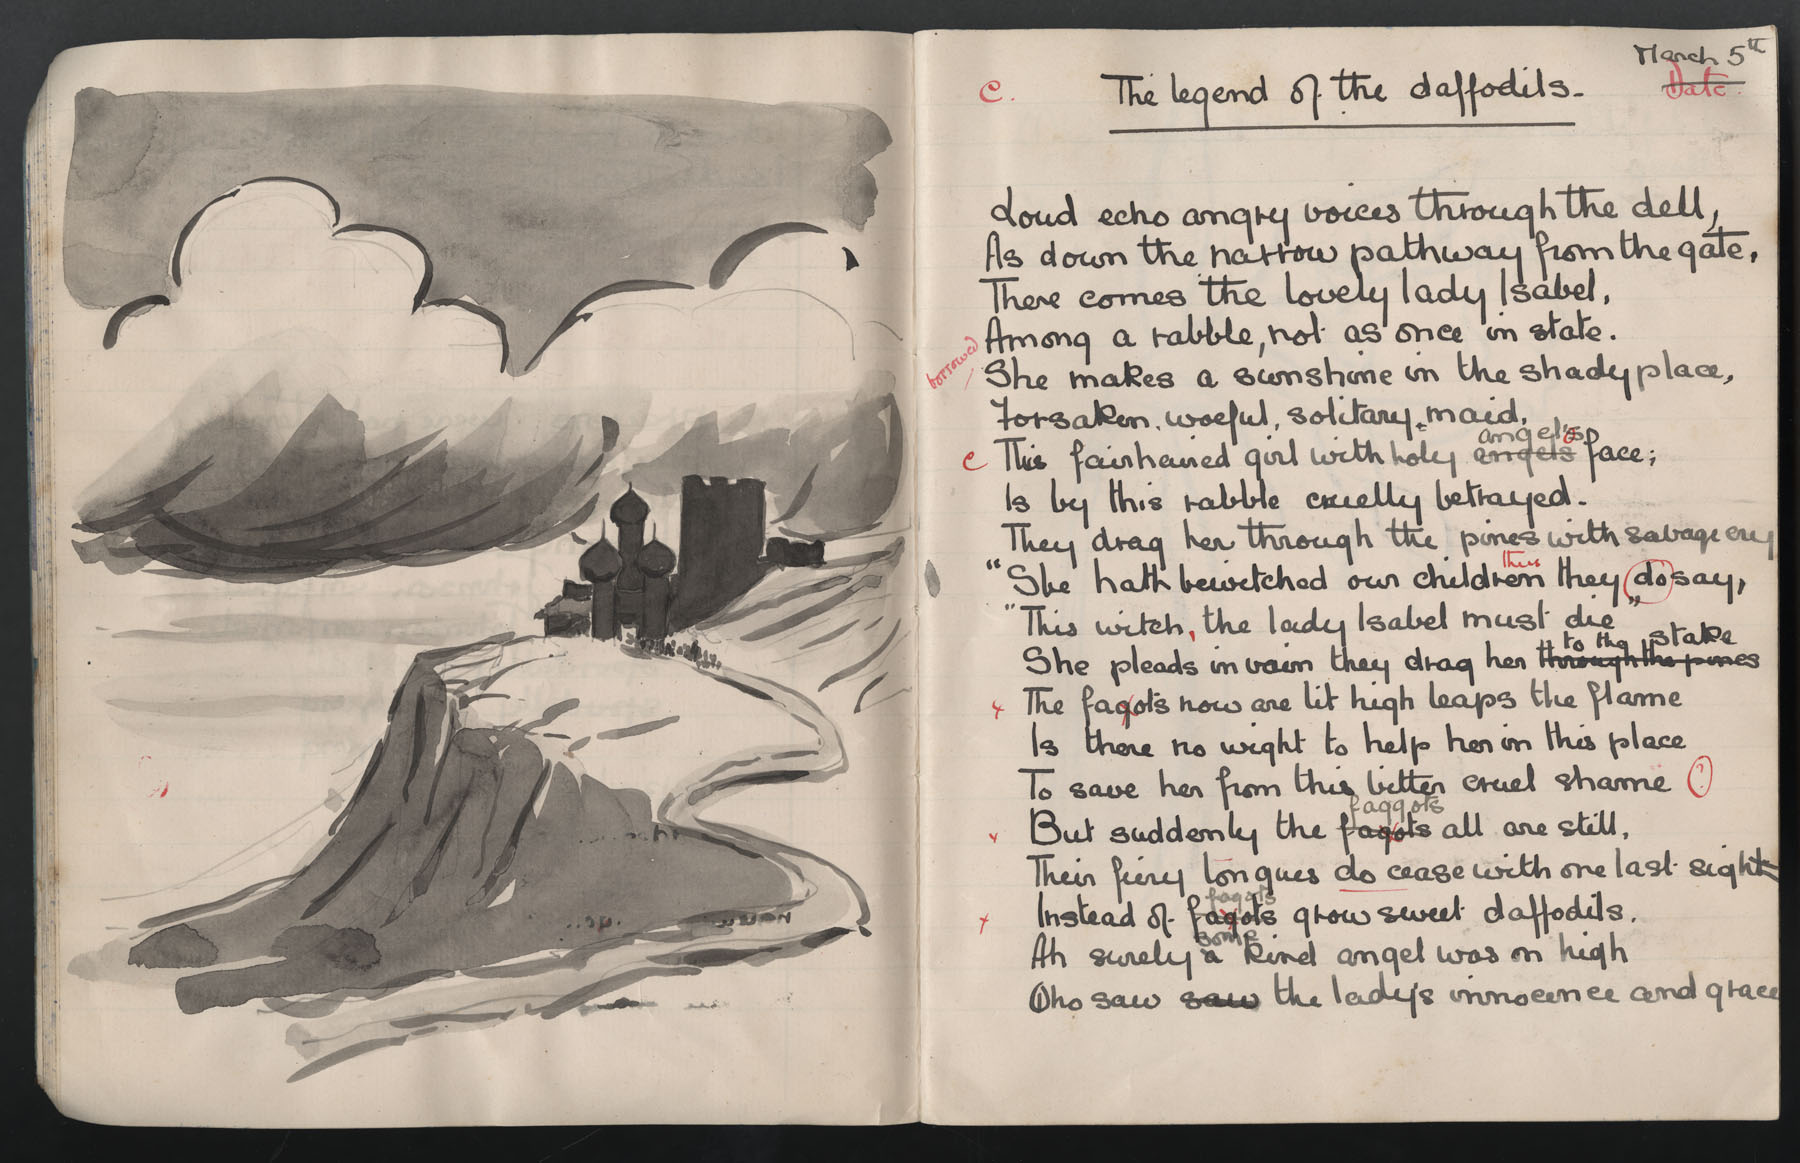 March 5th
Date.
c. The legend of the daffodils.
Loud echo angry voices through the dell,
As down the narrow pathway from the gate,
There comes the lovely lady Isabel,
Among a rabble, not as once in state.
borrowed
She makes a sunshine in the shady place,
Forsaken, woeful, solitary, maid,
angel's
c This fairhaired girl with holy angels face;
Is by this rabble cruelly betrayed.
They drag her through the pines with savage cry
thus
"She hath bewitched our children they do say,
"This witch, the lady Isabel must die"
to the stake
She pleads in vain they drag her through the pines
x The fagots now are lit high leaps the flame
Is there no wight to help her in this place
To save her from this bitter cruel shame ?
faggots
x But suddenly the fagots all are still,
Their fiery tongues do cease with one last sigh
fagots
x Instead of fagots grow sweet daffodils.
some
Ah surely a kind angel was on high
Who saw saw the lady's innocence and grace